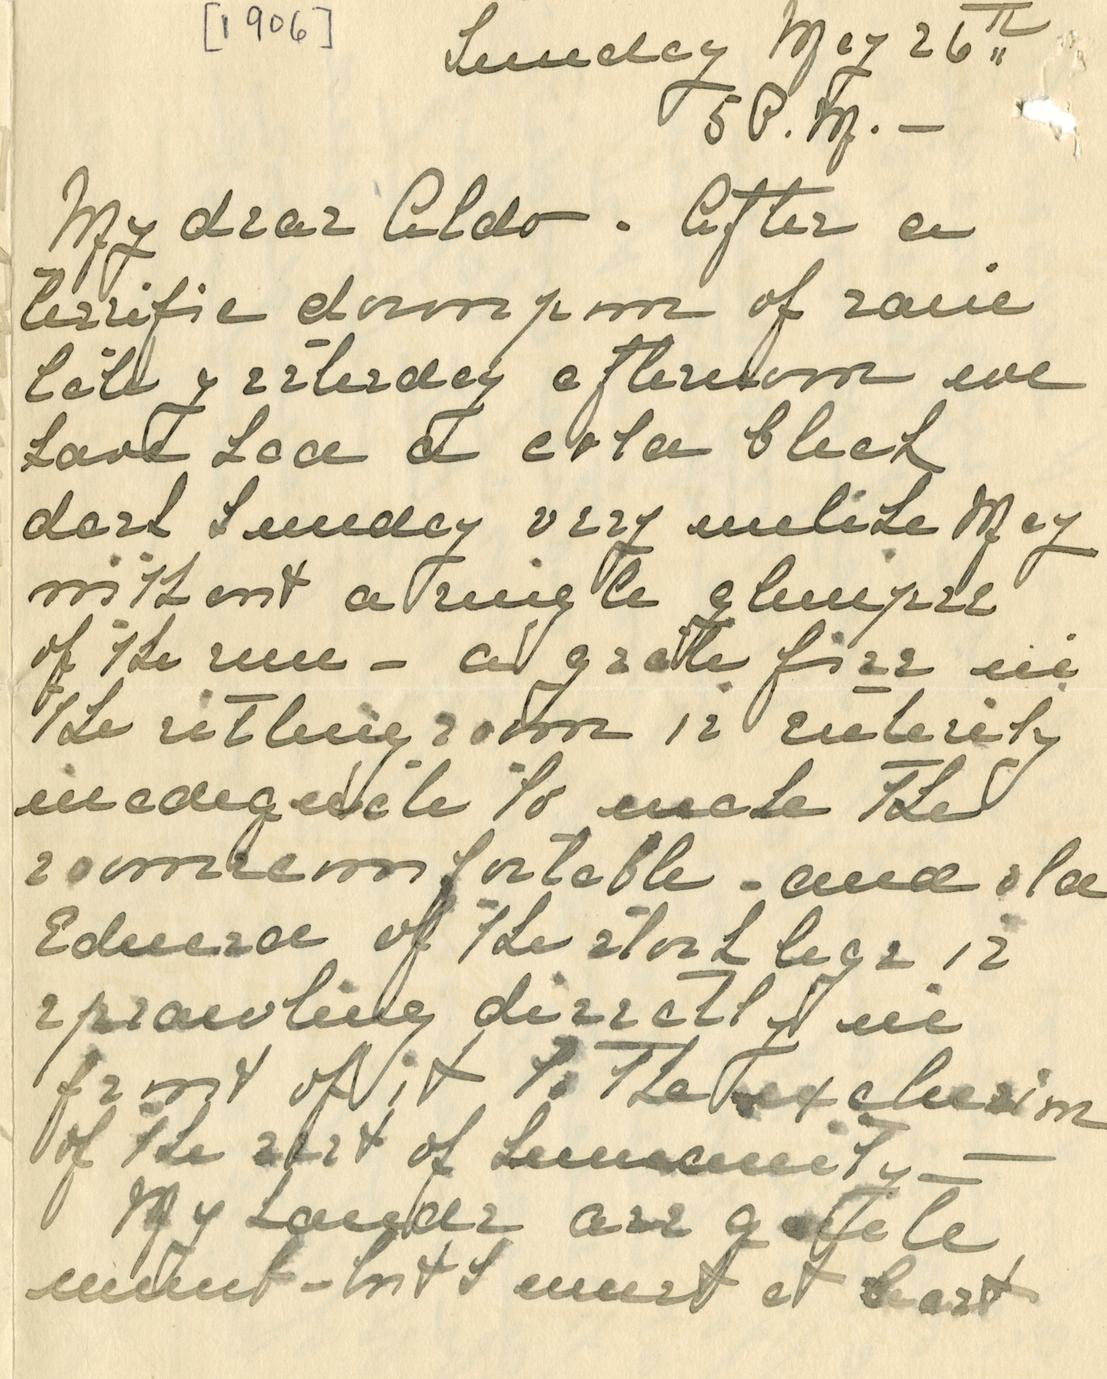 [1906]
Sunday May 26th
5 P.M. —
My dear Aldo. After a
terrific downpour of rain
late yesterday afternoon we
have had a cold black
dark Sunday very unlike May
without a single glimpse
of the sun — a grate fire in
the sitting room is entirely
inadequate to make the
room comfortable. and old
Edward of the stork legs is
sprawling directly in
front of it to the exclusion
of the rest of humanity —
My hands are quite
numb - but I must at least